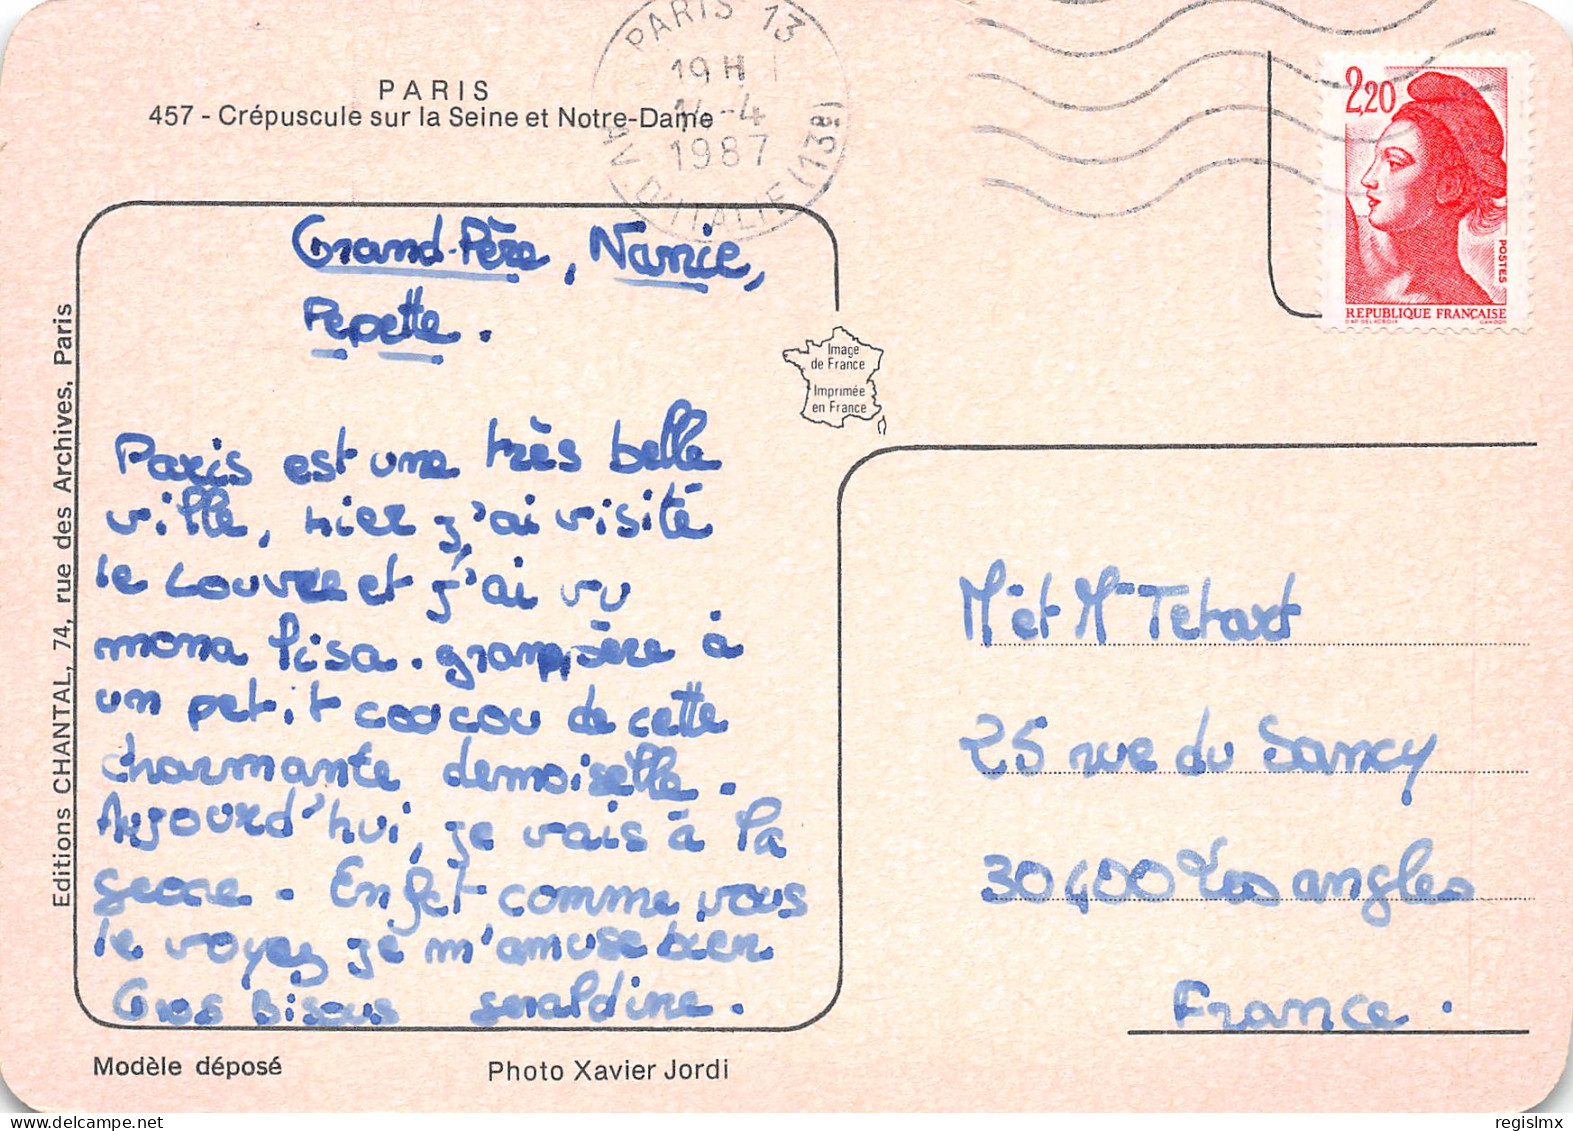 PARIS
457 - Crépuscule sur la Seine et Notre-Dame
PARIS 13
19 H
14-4
1987
AV. D'ITALIE (13è)
2,20
POSTES
REPUBLIQUE FRANÇAISE
Grand-Père, Nanie,
Pepette.
Image
de France
Imprimée
en France
Editions CHANTAL, 74, rue des Archives, Paris
Paris est une très belle
ville, hier j'ai visité
le Louvre et j'ai vu
mona lisa. grampère à
un petit coucou de cette
charmante demoiselle.
Aujourd'hui, je vais à la
geode. En fet comme vous
le voyez je m'amuse bien
Gros Bisous geraldine.
M et Mme Tetart
25 rue du Sancy
30400 Les angles
France.
Modèle déposé
Photo Xavier Jordi
regislmx